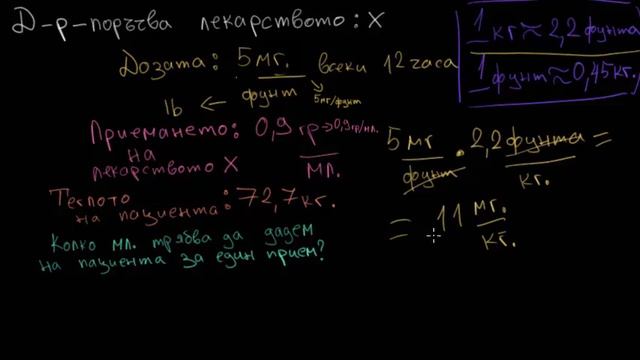 Д-р-поръчва лекарството: X
1 кг ≈ 2,2 фунта
1 фунт ≈ 0,45 кг.
Дозата: 5 мг. всеки 12 часа
фунт
5мг/фунт
lb ←
Приемането: 0,9 гр → 0,9гр/мл.
на мл.
лекарството X
Теглото
на пациента: 72,7 кг.
Колко мл. трябва да дадем
на пациента за един прием?
5 мг . 2,2 фунта =
фунт кг.
= 11 мг.
кг.